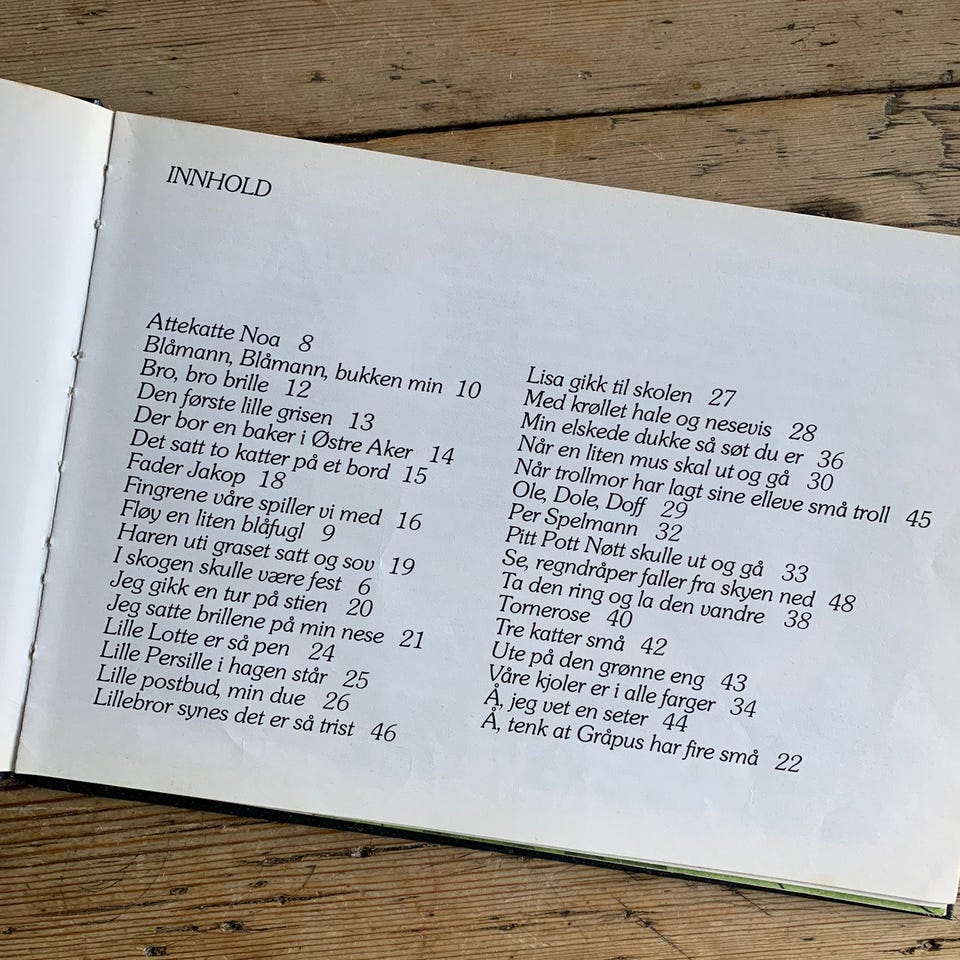 INNHOLD
Attekatte Noa 8
Blåmann, Blåmann, bukken min 10
Bro, bro brille 12
Den første lille grisen 13
Der bor en baker i Østre Aker 14
Det satt to katter på et bord 15
Fader Jakop 18
Fingrene våre spiller vi med 16
Fløy en liten blåfugl 9
Haren uti graset satt og sov 19
I skogen skulle være fest 6
Jeg gikk en tur på stien 20
Jeg satte brillene på min nese 21
Lille Lotte er så pen 24
Lille Persille i hagen står 25
Lille postbud, min due 26
Lillebror synes det er så trist 46
Lisa gikk til skolen 27
Med krøllet hale og nesevis 28
Min elskede dukke så søt du er 36
Når en liten mus skal ut og gå 30
Når trollmor har lagt sine elleve små troll 45
Ole, Dole, Doff 29
Per Spelmann 32
Pitt Pott Nøtt skulle ut og gå 33
Se, regndråper faller fra skyen ned 48
Ta den ring og la den vandre 38
Tornerose 40
Tre katter små 42
Ute på den grønne eng 43
Våre kjoler er i alle farger 34
Å, jeg vet en seter 44
Å, tenk at Gråpus har fire små 22